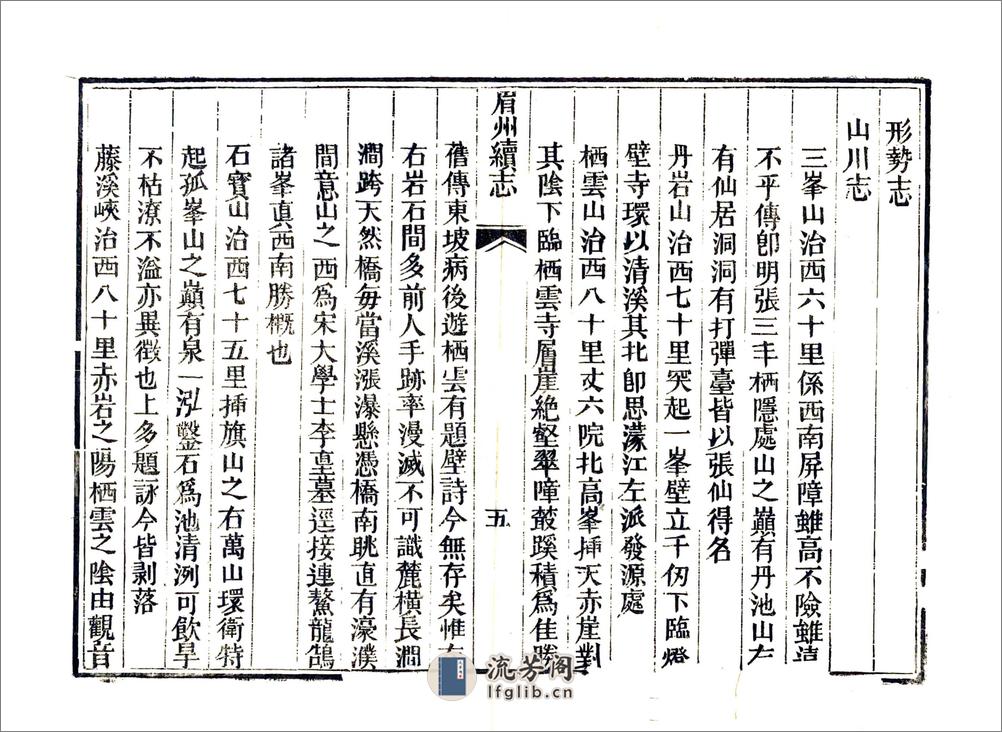 形勢志
山川志
三峯山治西六十里係西南屏障雖高不險雖遠
不平傳卽明張三丰栖隱處山之巔有丹池山左
有仙居洞洞有打彈臺皆以張仙得名
丹岩山治西七十里突起一峯壁立千仞下臨燈
壁寺環以清溪其北卽思濛江左派發源處
栖雲山治西八十里丈六院北高峯揷天赤崖對
其陰下臨栖雲寺層崖絶壑翠嶂叢蹊積爲佳勝
眉州續志
五
舊傳東坡病後遊栖雲有題壁詩今無存矣惟
右岩石間多前人手跡率漫滅不可識麓橫長澗
澗跨天然橋每當溪漲瀑懸憑橋南眺直有濠濮
間意山之西爲宋大學士李𡌴墓逕接連鰲龍鵠
諸峯眞西南勝槪也
石寳山治西七十五里揷旗山之右萬山環衛特
起孤峯山之巔有泉一泓鑿石爲池清洌可飲旱
不枯潦不溢亦異徵也上多題詠今皆剥落
藤溪峽治西八十里赤岩之陽栖雲之陰由觀音
流芳阁
lfglib.cn